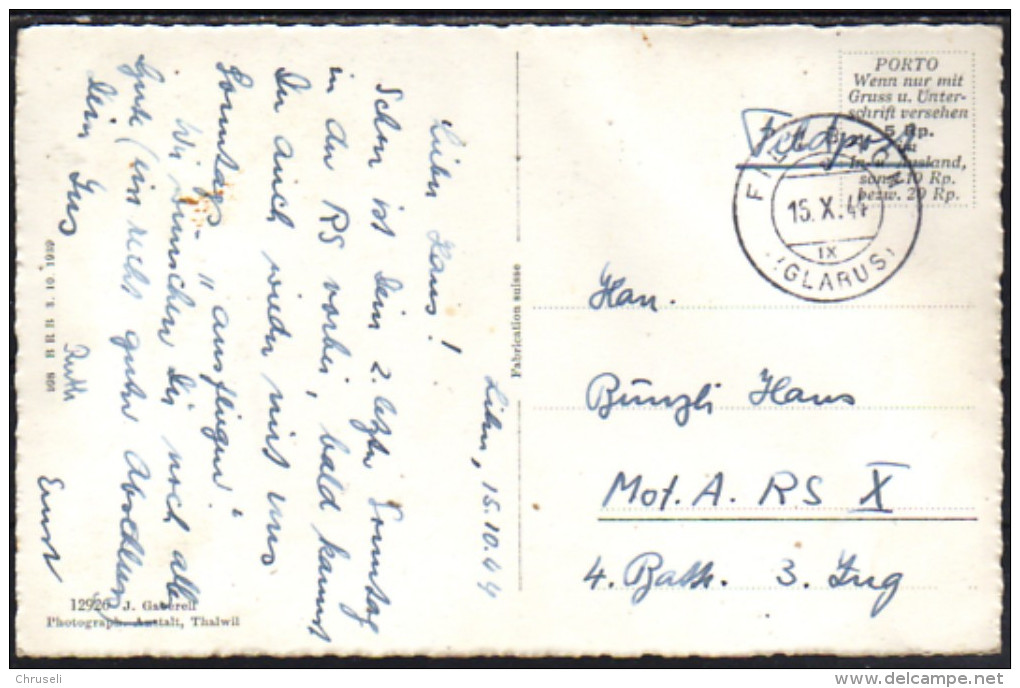 Lieber Hans!
Schon ist Dein 2. letzter Sonntag
in der RS vorbei, bald kannst
Du auch wieder mit uns
Sonntags "ausfliegen"
Wir wünschen Dir noch alles
Gute (ein recht guter Abschluss)
Dein Gus
Ruth
Ernst
15.10.44
6801 .01 .8 H H H
12926 J. Gaberell
Photograph. Anstalt, Thalwil
Fabrication suisse
PORTO
Wenn nur mit
Gruss u. Unter-
schrift versehen
5 Rp.
im
In- u. Ausland,
sonst 10 Rp.
bezw. 20 Rp.
Feldpost
15.X.44
IX
(GLARUS)
Kan.
Bünzli Hans
Mot. A. RS X
4. Battr. 3. Zug
Chruseli
delcampe.net